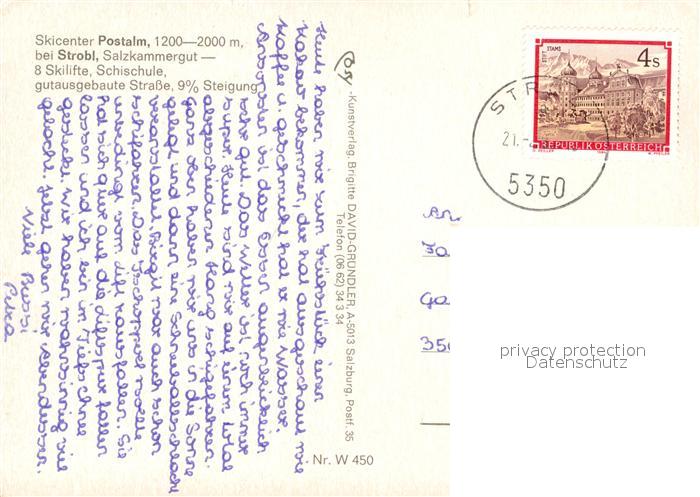 Skicenter Postalm, 1200—2000 m,
bei Strobl, Salzkammergut —
8 Skilifte, Schischule,
gutausgebaute Straße, 9% Steigung
-Kunstverlag, Brigitte DAVID-GRÜNDLER, A-5013 Salzburg, Postf. 35
Telefon (06 62) 34 3 34
Nr. W 450
STIFT STAMS
4 S
REPUBLIK ÖSTERREICH
STR
21.-
5350
Heute haben wir zum Frühstück einen
Kakao bekommen, der hat ausgeschaut wie
Kaffee u. geschmeckt hat er wie Wasser.
Ansonsten ist das Essen augenblicklich
sehr gut. Das Wetter ist noch immer
super. Heute sind wir auf einem total
abgeschiedenen Hang schigefahren.
Ganz oben haben wir uns in die Sonne
gelegt und dann eine Schneeballschlacht
veranstaltet. Birgit war auch schon
schifahren. Das Tschopperl wollte
unbedingt vom Lift rausfallen. Sie
hat sich quer auf die Liftspur fallen
lassen und ich bin im Tiefschnee
gesteckt. Wir haben wahnsinnig viel
gelacht. Jetzt gehen wir Abendessen.
Viele Bussi
Petra
An
Fa
Ga
350
privacy protection
Datenschutz